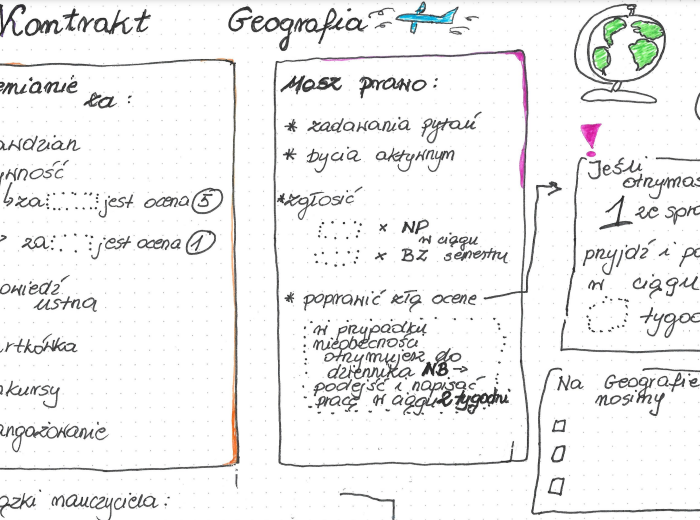 Kontrakt Geografia
emianie
za:
awdzian
ywność
bza jest ocena 5
za jest ocena 1
owiedź
ustna
rtkówka
nkursy
angażowanie
ązki nauczyciela:
Masz prawo:
* zadawania pytań
* bycia aktywnym
* zgłosić
x NP
w ciągu
x BZ semestru
* poprawić złą ocene
w przypadku
nieobecności
otrzymujesz do
dziennika NB →
podejść i napisać
pracę w ciągu 2 tygodni
!
Jeśli
otrzymas
1 ze spra
przyjdź i po
w ciągu
tygod
Na Geografie
nosimy